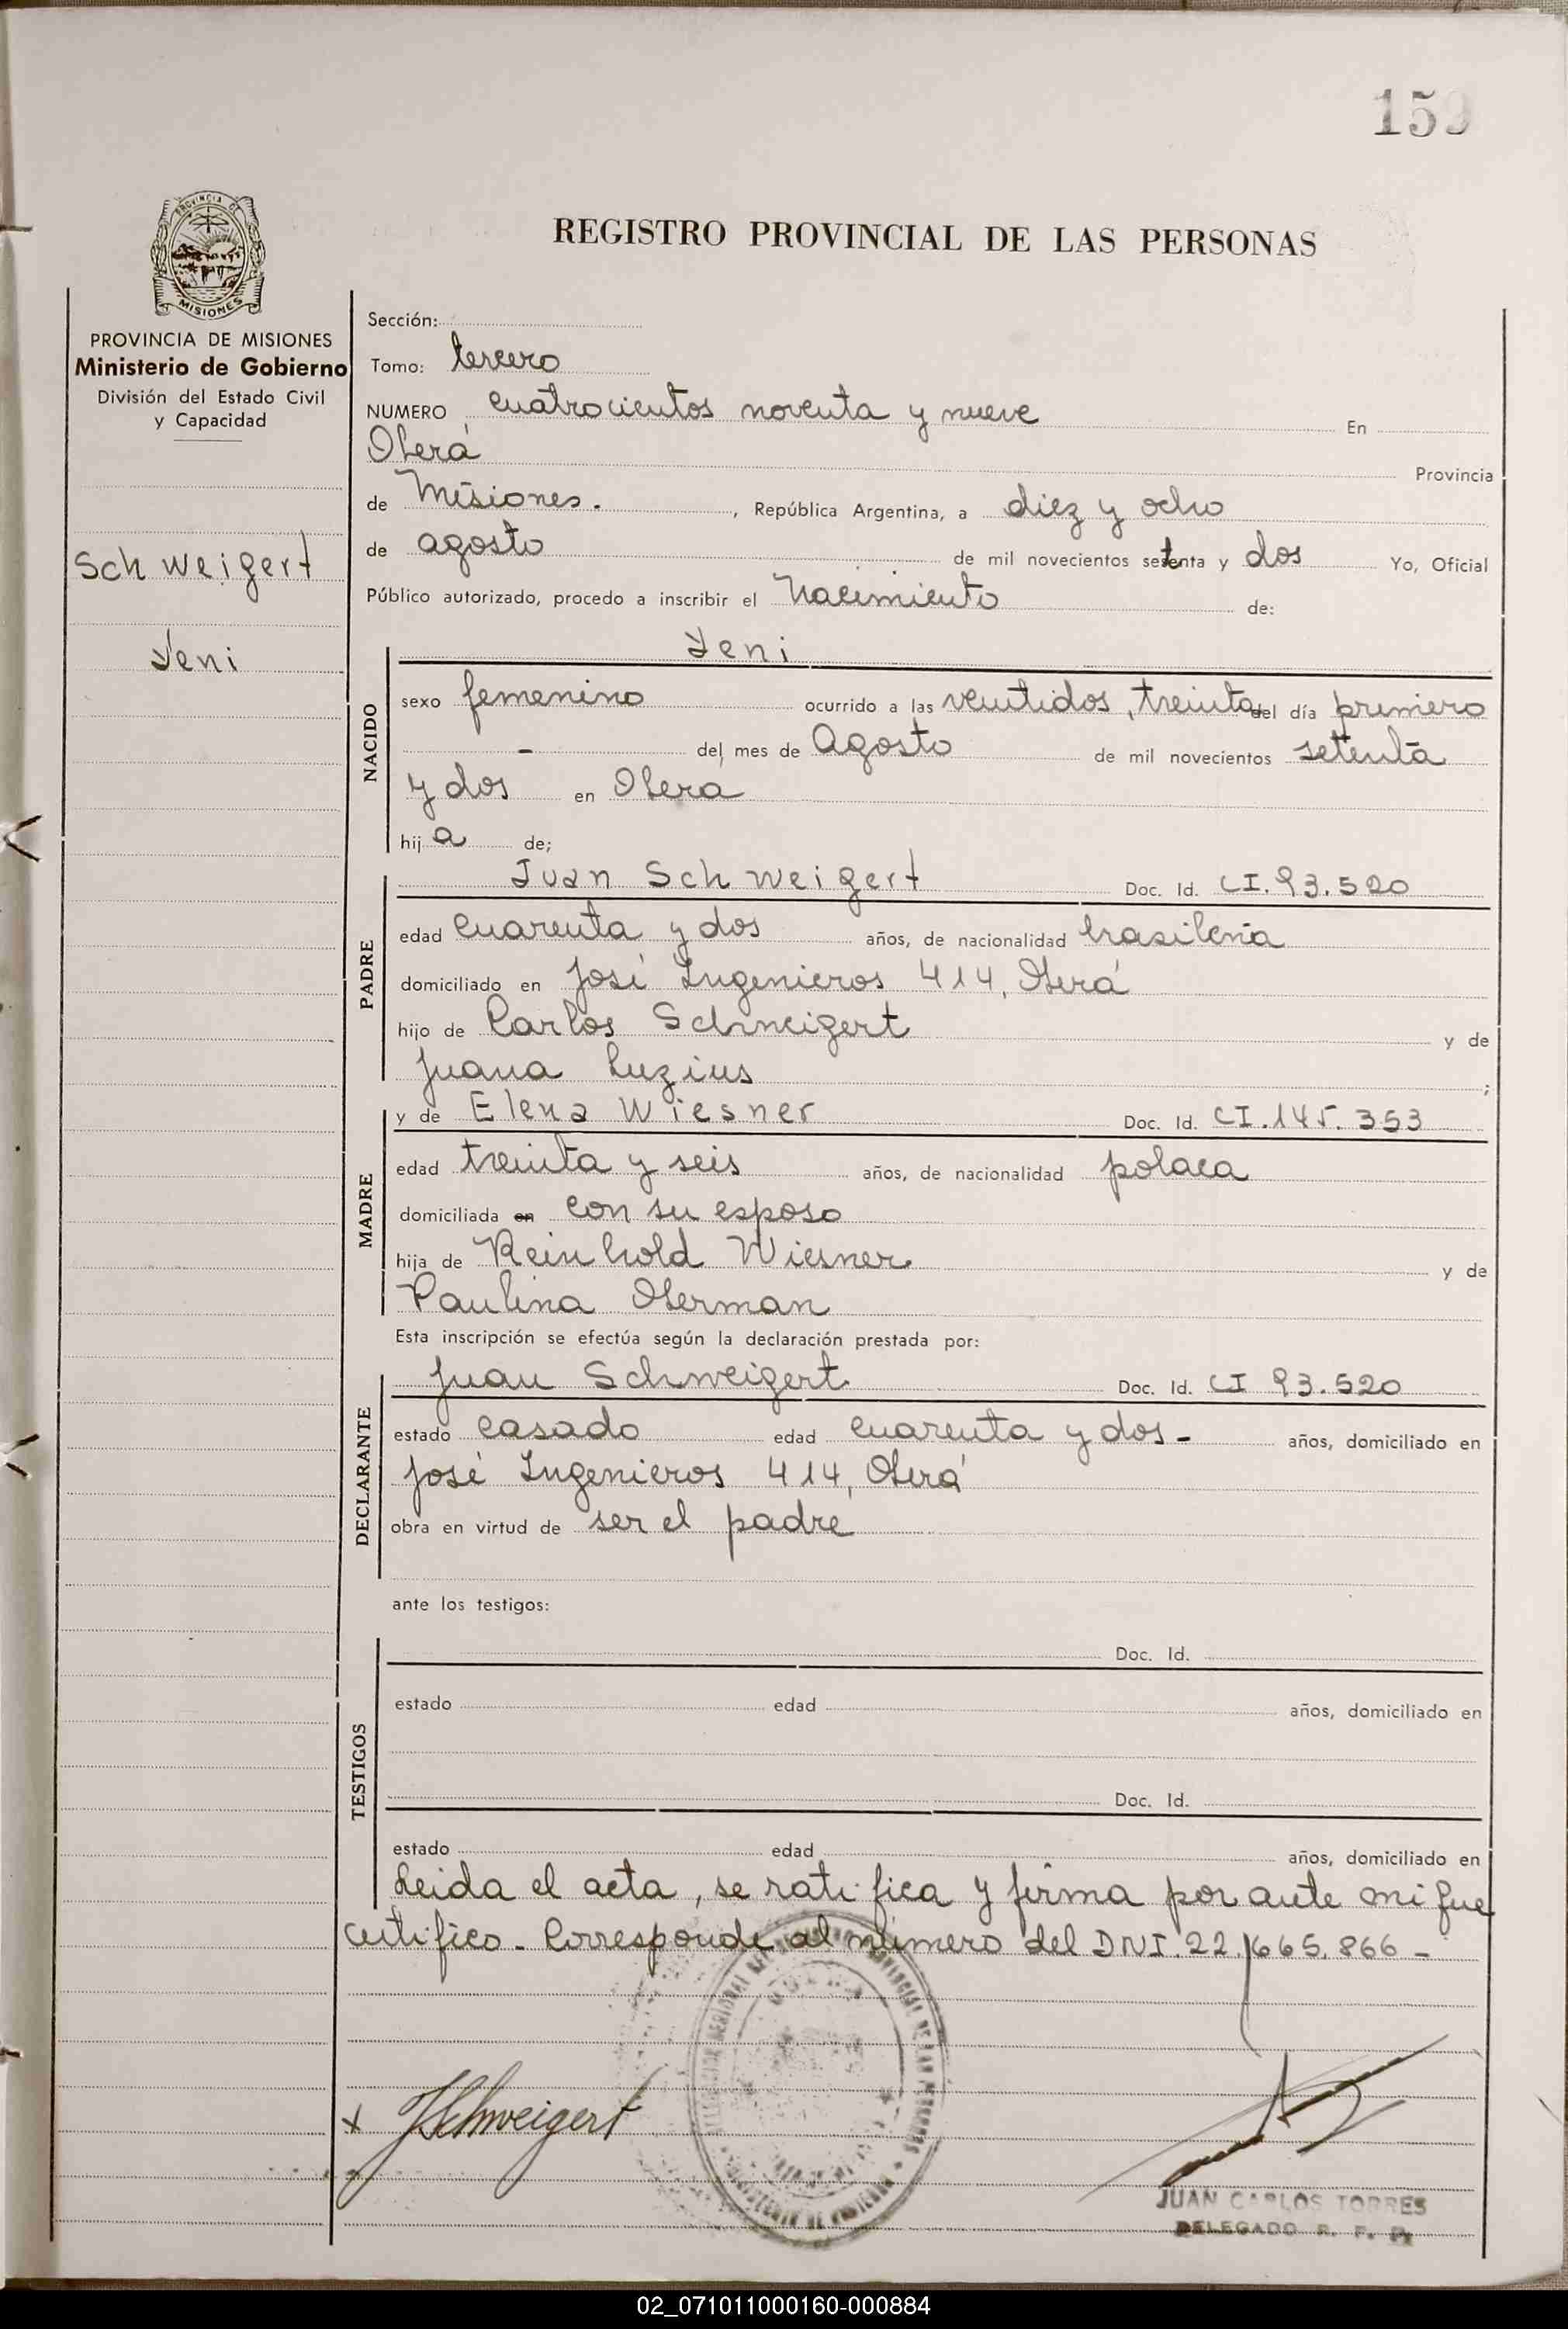 159
PROVINCIA DE
MISIONES
REGISTRO PROVINCIAL DE LAS PERSONAS
PROVINCIA DE MISIONES
Ministerio de Gobierno
División del Estado Civil
y Capacidad
Schweigert
Yeni
Sección:
Tomo: tercero
NUMERO cuatrocientos noventa y nueve En
Oberá Provincia
de Misiones. , República Argentina, a diez y ocho
de agosto de mil novecientos setenta y dos Yo, Oficial
Público autorizado, procedo a inscribir el Nacimiento de:
Yeni
NACIDO
sexo femenino ocurrido a las veintidos, treinta del día primero
- del mes de Agosto de mil novecientos setenta
y dos en Obera
hij a de;
PADRE
Juan Schweigert Doc. Id. CI. 93.520
edad cuarenta y dos años, de nacionalidad brasileña
domiciliado en José Ingenieros 414, Oberá
hijo de Carlos Schweigert y de
Juana Luzius ;
MADRE
y de Elena Wiesner Doc. Id. CI. 145.353
edad treinta y seis años, de nacionalidad polaca
domiciliada en con su esposo
hija de Reinhold Wiesner y de
Paulina Oberman
Esta inscripción se efectúa según la declaración prestada por:
DECLARANTE
Juan Schweigert Doc. Id. CI 93.520
estado casado edad cuarenta y dos - años, domiciliado en
José Ingenieros 414, Oberá
obra en virtud de ser el padre
ante los testigos:
TESTIGOS
Doc. Id.
estado edad años, domiciliado en
Doc. Id.
estado edad años, domiciliado en
Leida el acta, se ratifica y firma por ante mi que
certifico - Corresponde al número del DNI. 22.665.866 -
x JSchweigert
JUAN CARLOS TORRES
DELEGADO R. P. P.
02_071011000160-000884